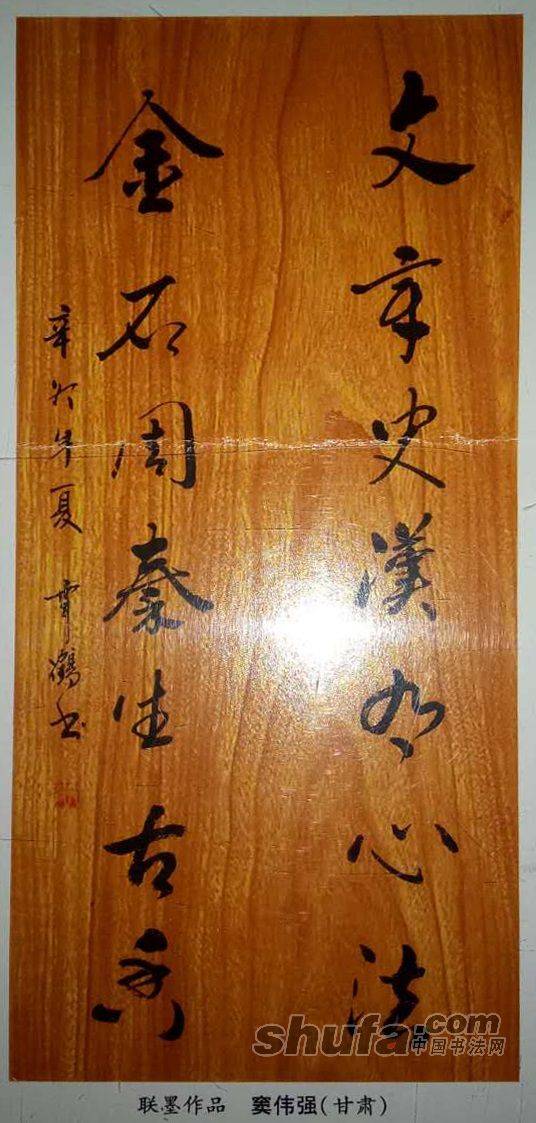 文章史漢有心法
金石周秦生古香
辛卯年夏 霄鶴书
shufa.com
中国书法网
联墨作品 窦伟强(甘肃)